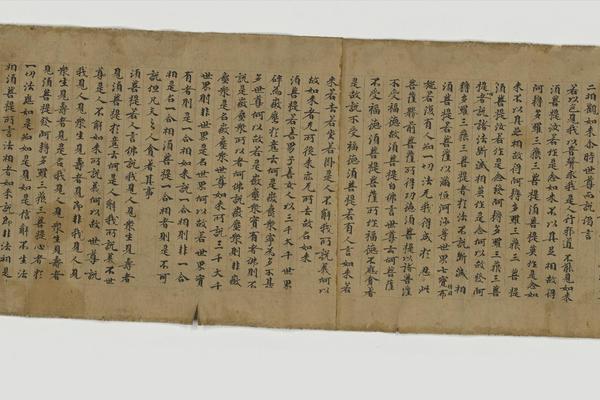 二相觀如来尒時世尊而說偈言
若以色見我以音聲求我是人行邪道不能見如来
須菩提汝若作是念如来不以具足相故得
阿耨多羅三藐三菩提須菩提莫作是念如
来不以具足相故得阿耨多羅三藐三菩提
須菩提汝若作是念發阿耨多羅三藐三菩
提者說諸法斷滅相莫作是念何以故發阿
耨多羅三藐三菩提者於法不說斷滅相
須菩提若菩薩以滿恒河沙等世界七寶布
施若復有人知一切法无我得成於忍此
菩薩勝前菩薩所得功德須菩提以諸菩薩
不受福德故須菩提白佛言世尊云何菩薩
不受福德須菩提菩薩所作福德不應貪著
是故說不受福德須菩提若有人言如来若
来若去若坐若卧是人不解我所說義何以
故如来者无所從来亦无所去故名如来
須菩提若善男子善女人以三千大千世界
碎為微塵於意云何是微塵衆寧為多不甚
多世尊何以故若是微塵衆實有者佛則不
說是微塵衆所以者何佛說微塵衆則非微
塵衆是名微塵衆世尊如来所說三千大千
世界則非世界是名世界何以故若世界實
有者則是一合相如来說一合相則非一合
相是名一合相須菩提一合相者則是不可
說但凡夫之人貪著其事
須菩提若人言佛說我見人見衆生見壽者
見須菩提於意云何是人解我所說義不世
尊是人不解如来所說義何以故世尊說
我見人見衆生見壽者見即非我見人見
衆生見壽者見是名我見人見衆生見壽者
見須菩提發阿耨多羅三藐三菩提心者於
一切法應如是知如是見如是信解不生法
相須菩提所言法相者如来說即非法相是